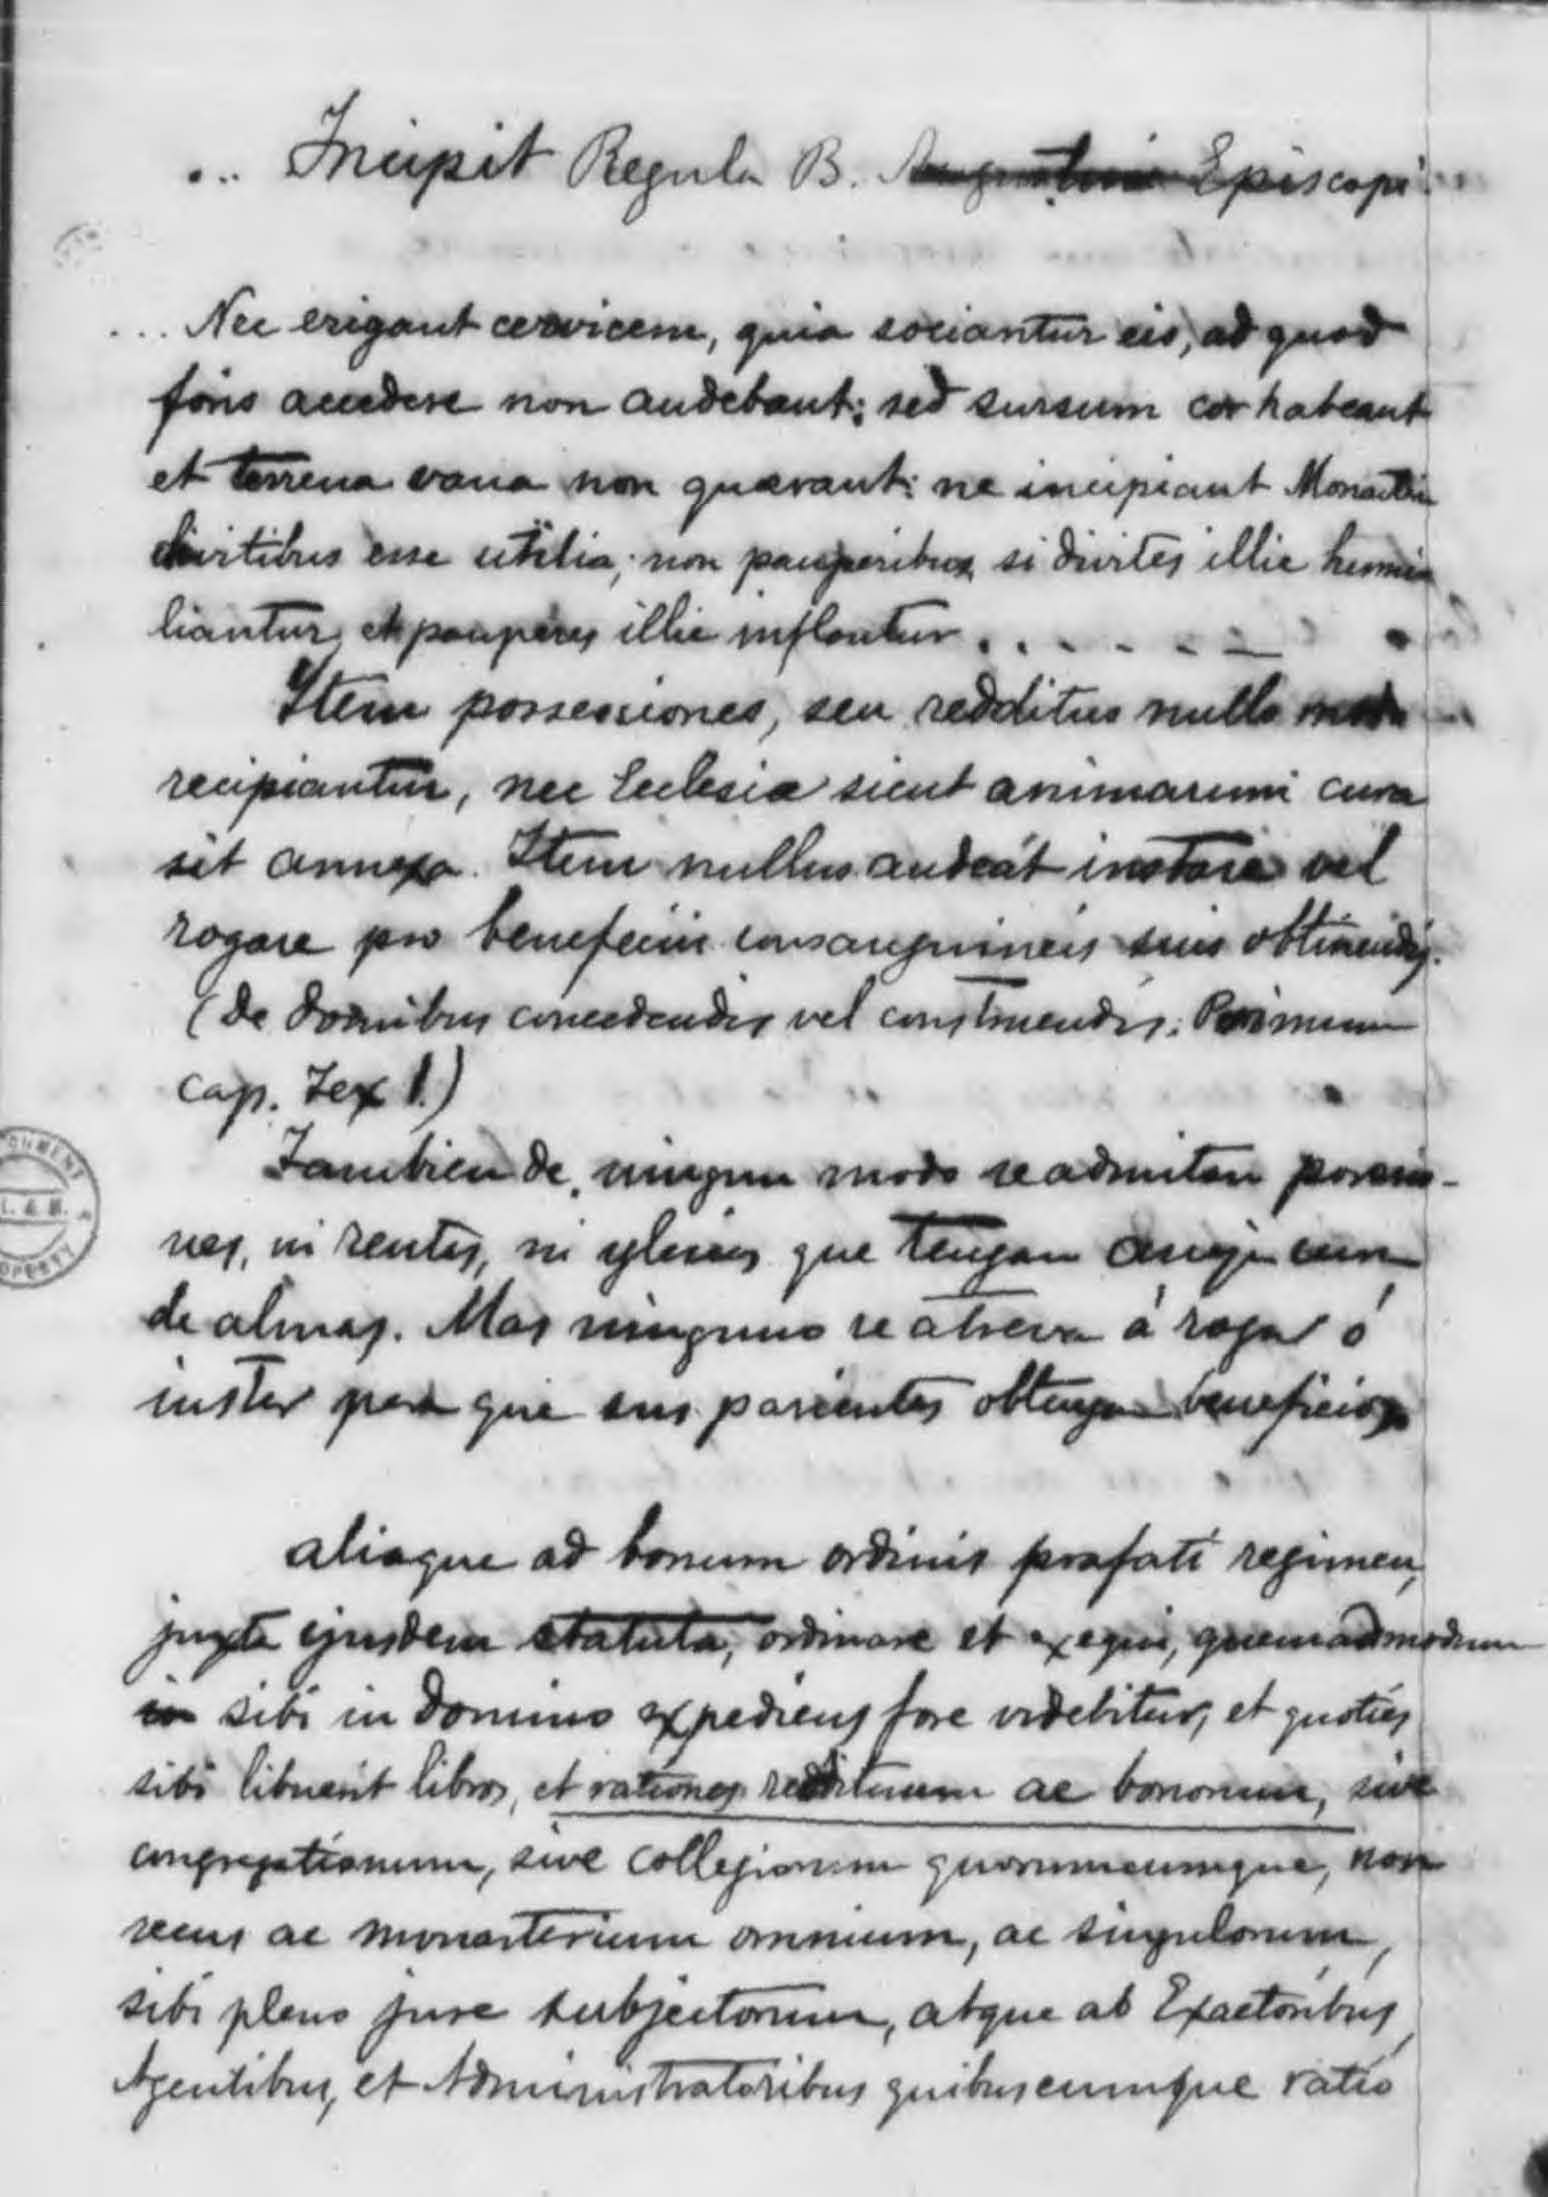 ... Incipit Regula B. Augustini Episcopi.
... Nec erigant cervicem, quia sociantur eis, ad quod
foris accedere non audebant; sed sursum cor habeant
et terrena vana non quærant: ne incipiant Monasteria
divitibus esse utilia, non pauperibus si divites illic humi
liantur, et pauperes illic inflantur . . . . . .
Item possessiones, seu redditus nullo modo
recipiantur, nec Ecclesia sicut animarum cura
sit annexa. Item nullus audeat instare vel
rogare pro beneficiis consanguineis suis obtinendis.
(De domibus concedendis vel construendis: Primum
cap. Tex 1.)
Tambien de ningun modo se admitan posesio-
nes, ni rentas, ni yglesias que tengan aneja cura
de almas. Mas ninguno se atreva á rogar ó
instar para que sus parientes obtengan beneficios
aliaque ad bonum ordinis præfati regimen,
juxta ejusdem statuta, ordinare et exequi, quemadmodum
sibi in Domino expediens fore videbitur, et quoties
sibi libuerit libros, et rationes reddituum ac bonorum, sive
congregationum, sive collegiorum quorumcumque, non
secus ac monasterium omnium, ac singulorum,
sibi pleno jure subjectorum, atque ab Exactoribus,
Agentibus, et Administratoribus quibuscumque ratio
DOCUMENT
PROPERTY